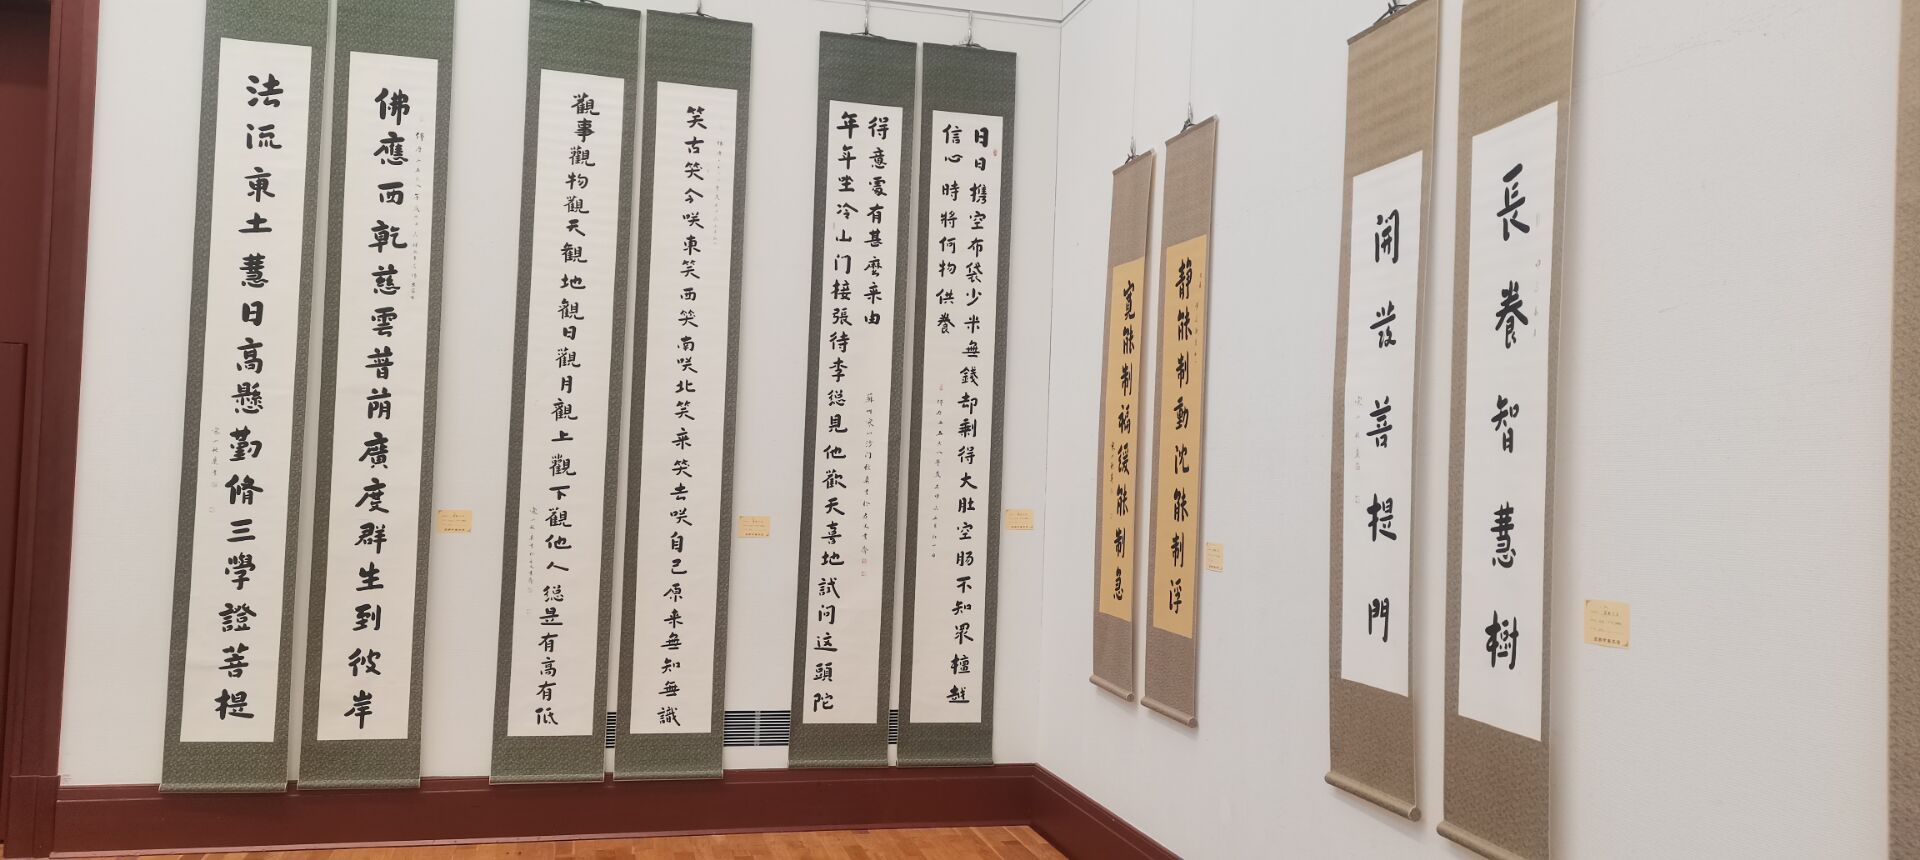 佛應西乾慈雲普荫廣度群生到彼岸
法流東土慧日高懸勤脩三學證菩提
笑古笑今咲東笑西笑南咲北笑来笑去咲自己原来無知無識
觀事觀物觀天觀地觀日觀月觀上觀下觀他人總是有高有低
日日携空布袋少米無錢却剩得大肚空肠不知眾檀越
信心時將何物供養
年年坐冷山门接張待李總見他歡天喜地試问这頭陀
得意處有甚麼来由
靜能制動沈能制浮
寬能制褊緩能制急
長養智慧樹
開發菩提門